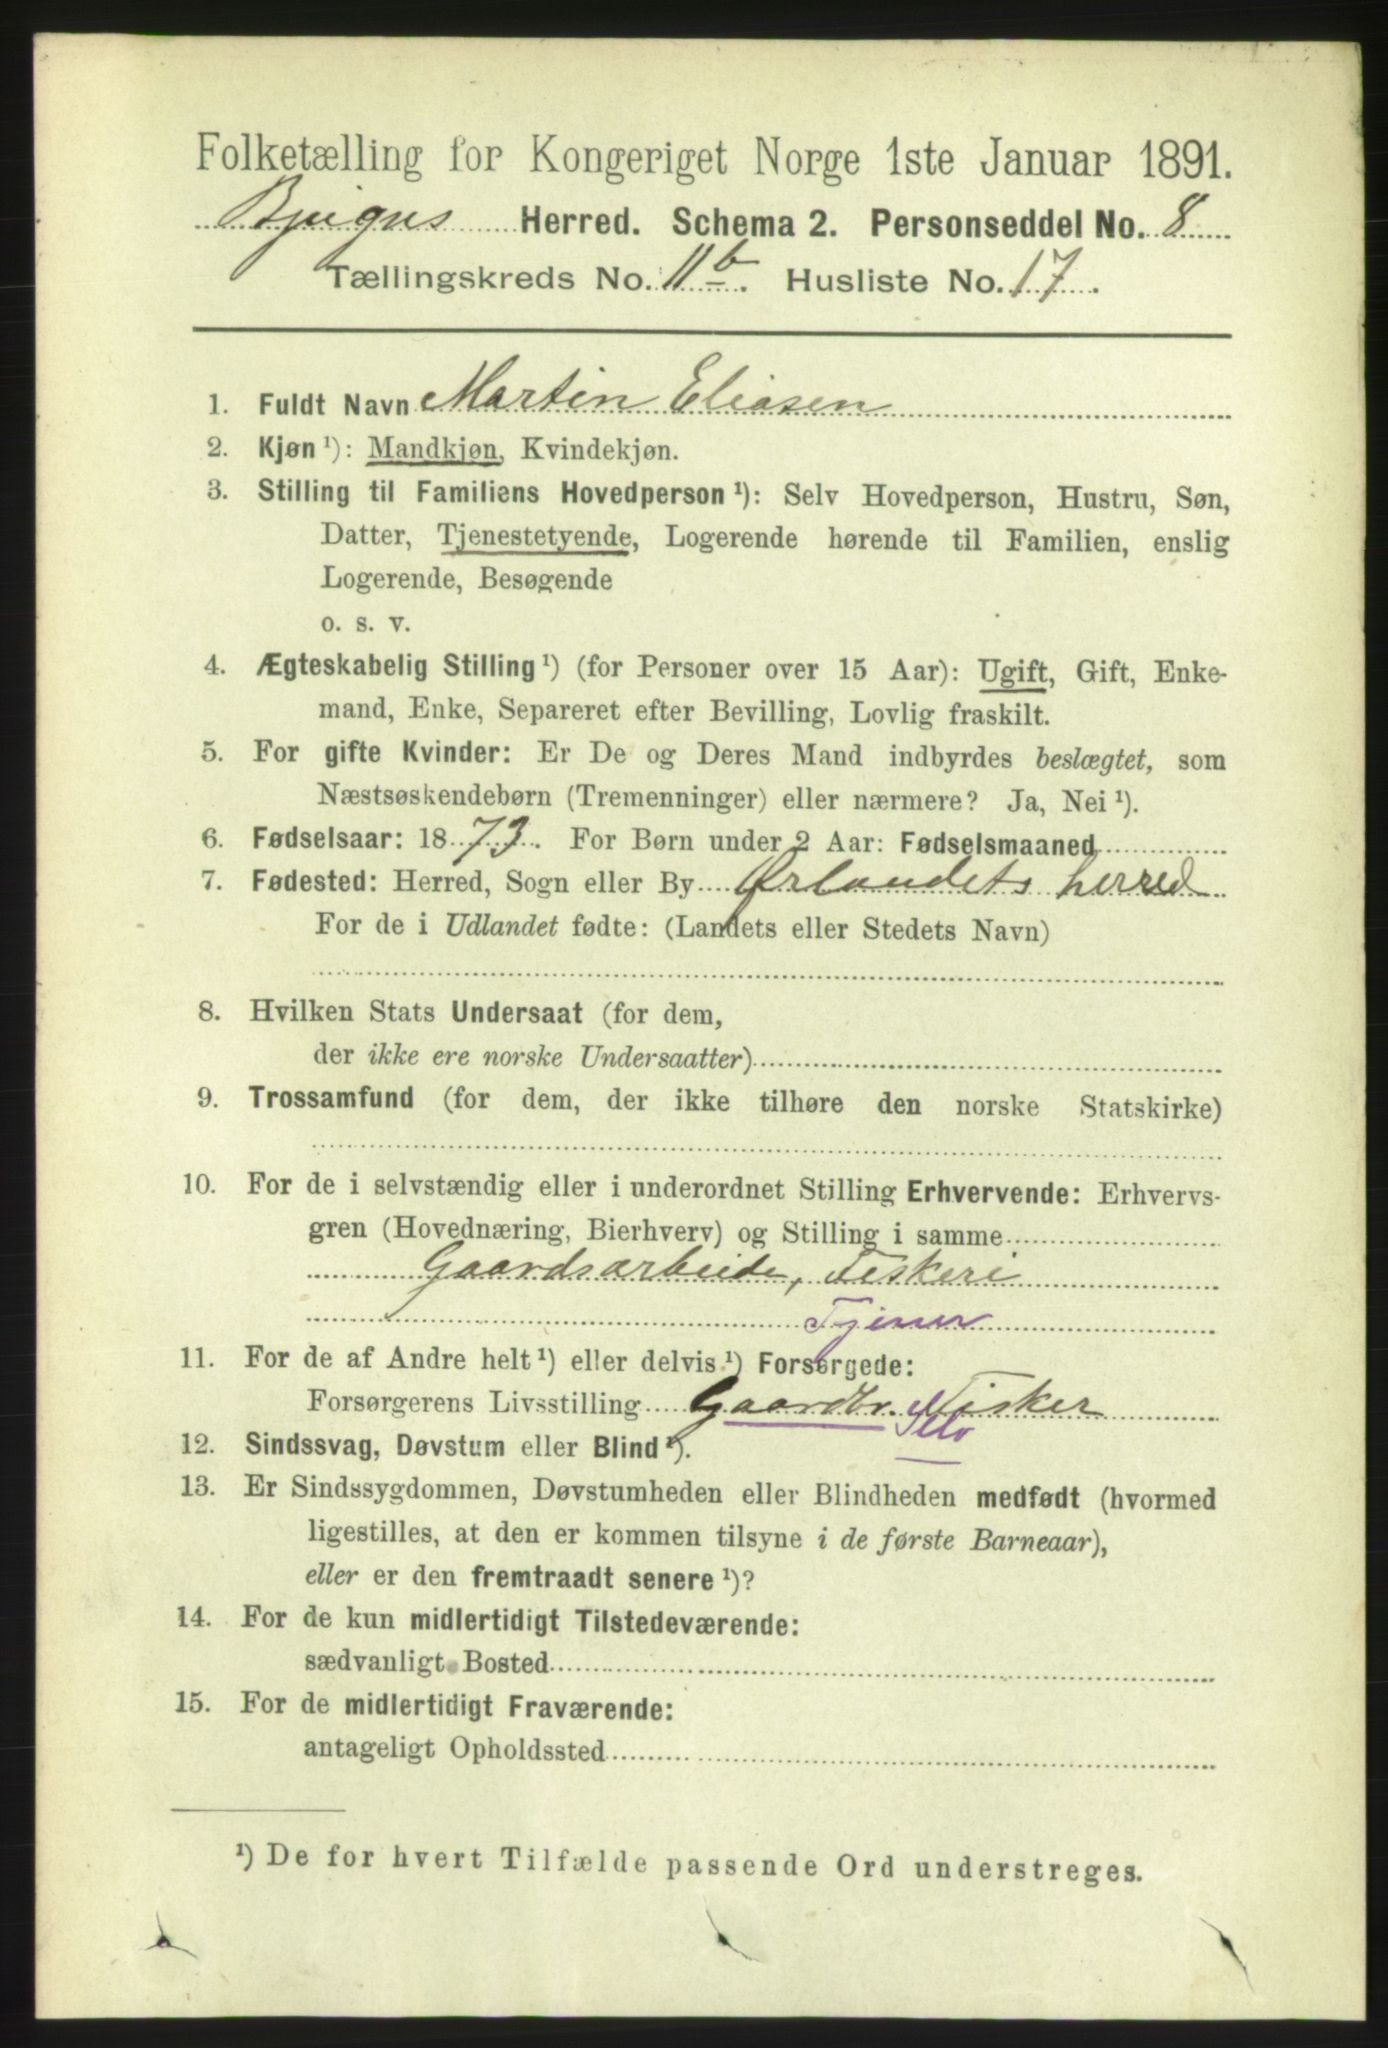 Folketælling for Kongeriget Norge 1ste Januar 1891.
Bjugns Herred. Schema 2. Personseddel No. 8
Tællingskreds No. 11b. Husliste No. 17.
1. Fuldt Navn Martin Eliasen
2. Kjøn¹): Mandkjøn, Kvindekjøn.
3. Stilling til Familiens Hovedperson¹): Selv Hovedperson, Hustru, Søn,
Datter, Tjenestetyende, Logerende hørende til Familien, enslig
Logerende, Besøgende
o. s. v.
4. Ægteskabelig Stilling¹) (for Personer over 15 Aar): Ugift, Gift, Enke-
mand, Enke, Separeret efter Bevilling, Lovlig fraskilt.
5. For gifte Kvinder: Er De og Deres Mand indbyrdes beslægtet, som
Næstsøskendebørn (Tremenninger) eller nærmere? Ja, Nei¹).
6. Fødselsaar: 1873. For Børn under 2 Aar: Fødselsmaaned
7. Fødested: Herred, Sogn eller By Ørlandets herred
For de i Udlandet fødte: (Landets eller Stedets Navn)
8. Hvilken Stats Undersaat (for dem,
der ikke ere norske Undersaatter)
9. Trossamfund (for dem, der ikke tilhøre den norske Statskirke)
10. For de i selvstændig eller i underordnet Stilling Erhvervende: Erhvervs-
gren (Hovednæring, Bierhverv) og Stilling i samme
Gaardsarbeide, Fiskeri
Tjener
11. For de af Andre helt¹) eller delvis¹) Forsørgede:
Forsørgerens Livsstilling Gaardbr. Fisker
Selv
12. Sindssvag, Døvstum eller Blind¹).
13. Er Sindssygdommen, Døvstumheden eller Blindheden medfødt (hvormed
ligestilles, at den er kommen tilsyne i de første Barneaar),
eller er den fremtraadt senere¹)?
14. For de kun midlertidigt Tilstedeværende:
sædvanligt Bosted
15. For de midlertidigt Fraværende:
antageligt Opholdssted
¹) De for hvert Tilfælde passende Ord understreges.